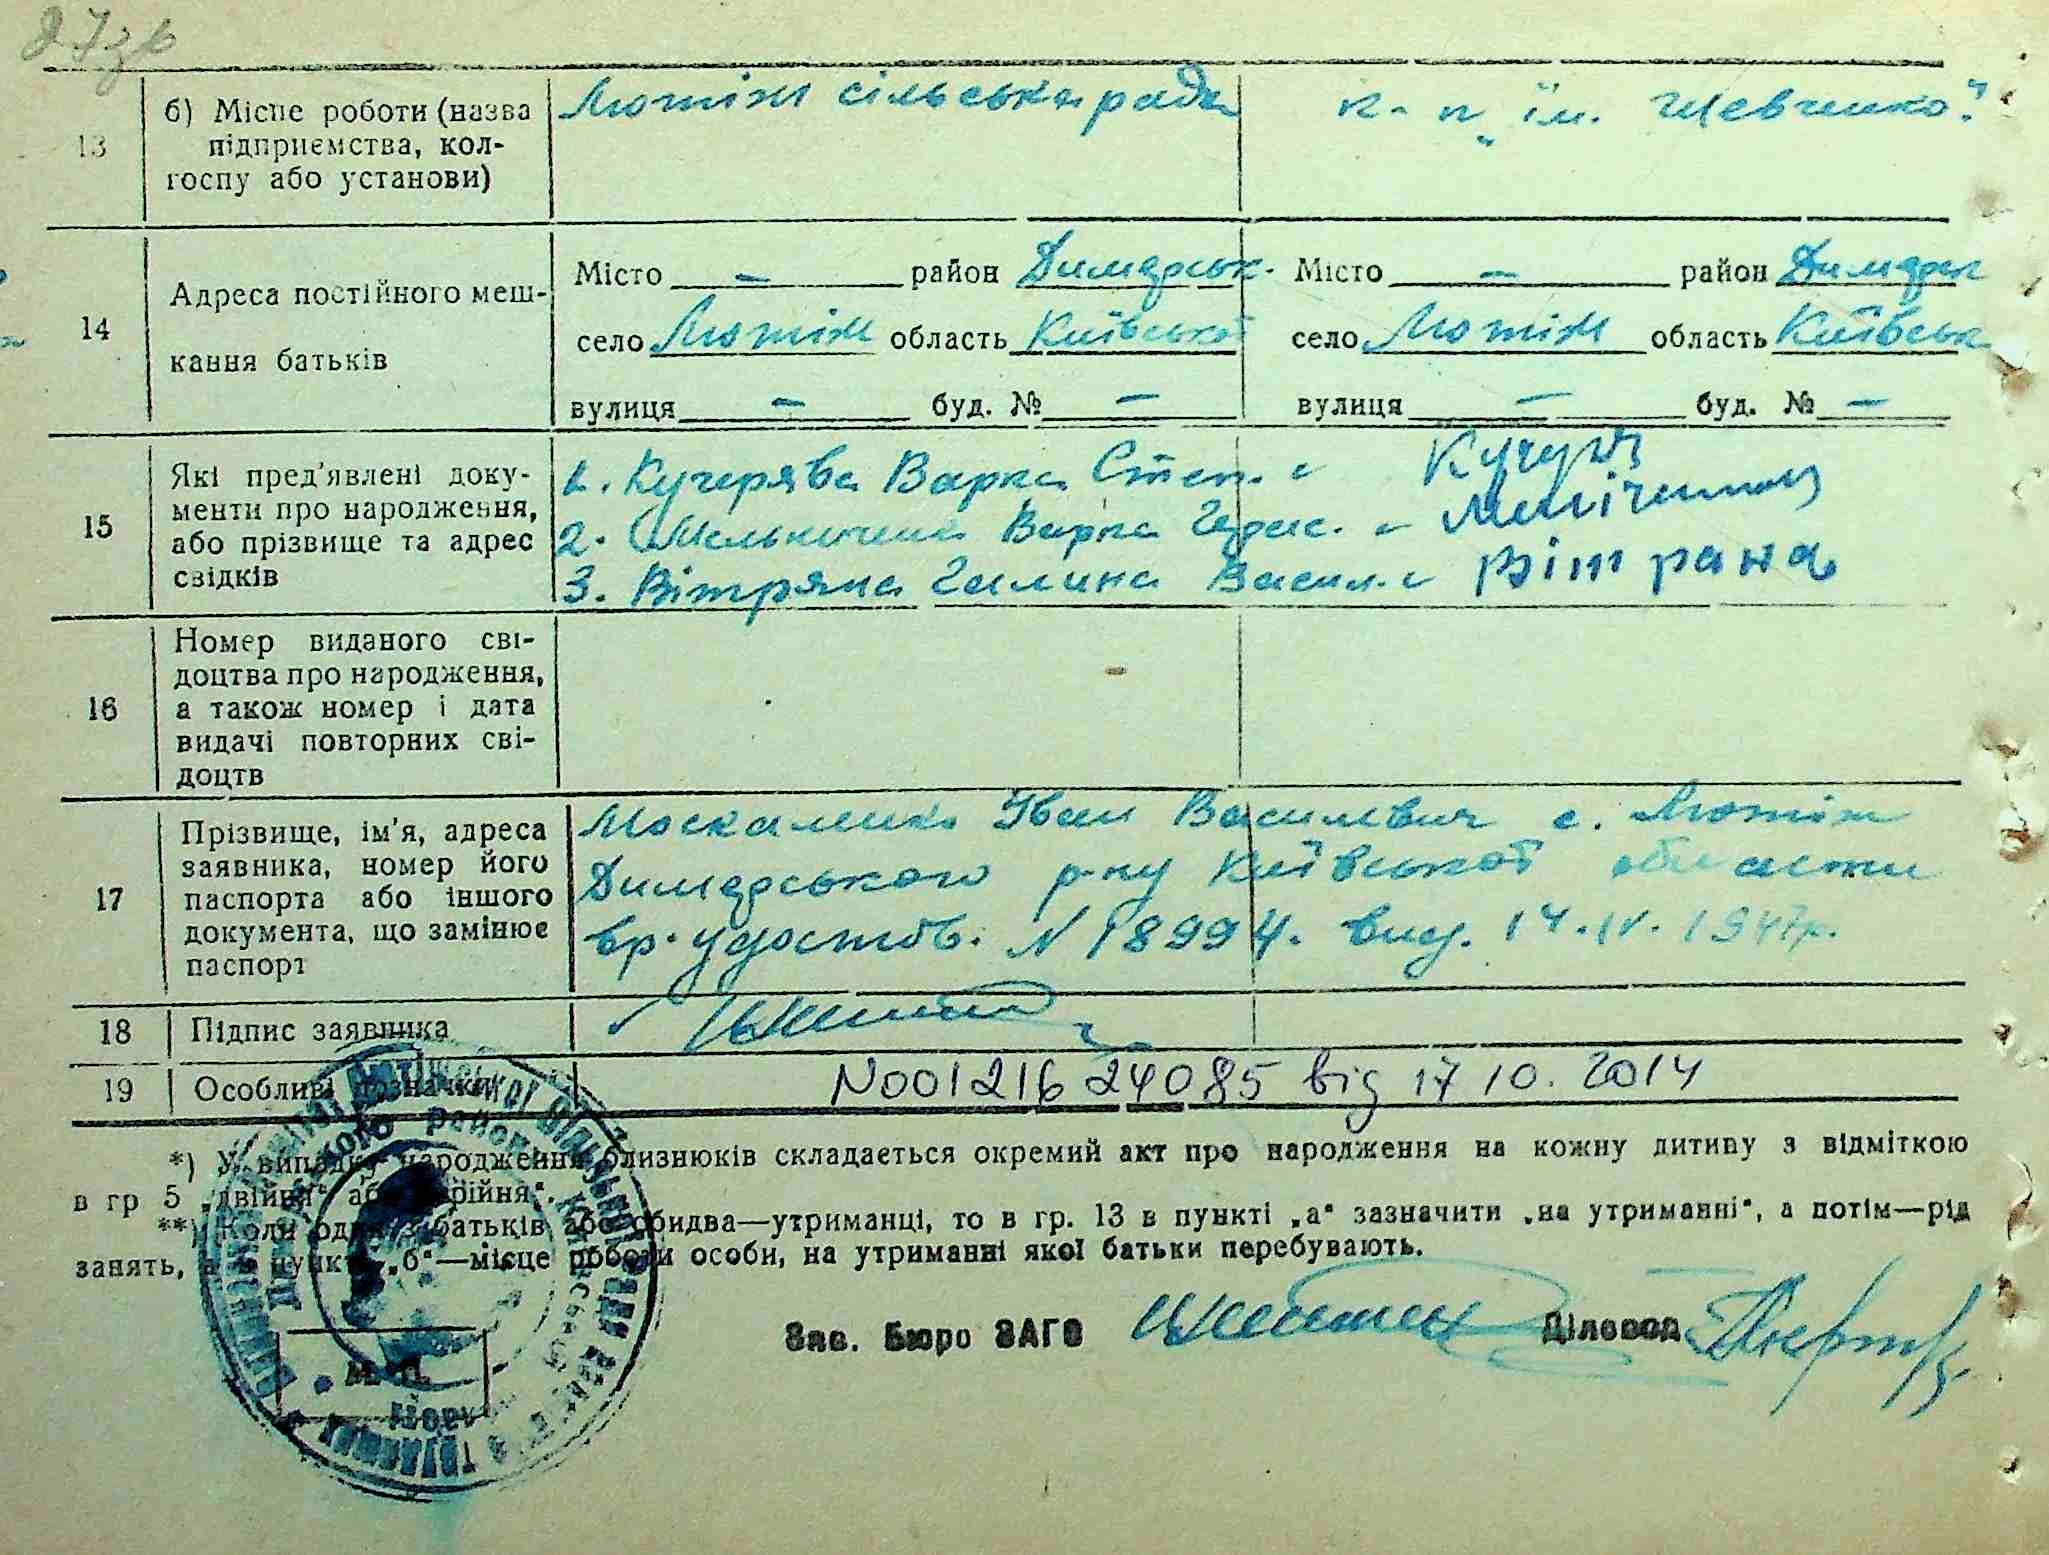 27зв
13
б) Місце роботи (назва
підприємства, кол-
госпу або установи)
Лютіж сільська рада
к-п „ім. Шевченко"
14
Адреса постійного меш-
кання батьків
Місто — район Димерськ.
село Лютіж область Київської
вулиця — буд. № —
Місто — район Димерськ
село Лютіж область Київськ
вулиця — буд. № —
15
Які пред'явлені доку-
менти про народження,
або прізвище та адрес
свідків
1. Кучерява Варка Степ.
2. Мельничен Варка Герас.
3. Вітряна Галина Васил. Вітрана
16
Номер виданого сві-
доцтва про народження,
а також номер і дата
видачі повторних сві-
доцтв
17
Прізвище, ім'я, адреса
заявника, номер його
паспорта або іншого
документа, що замінює
паспорт
Москаленко Іван Васильович с. Лютіж
Димерського р-ну Київської области
вр. удостов. N 18994. вид. 14.IV. 1947р.
18
Підпис заявника
19
Особливі дозначки
N00121624085 від 17 10. 2014
*) У випадку народження близнюків складається окремий акт про народження на кожну дитину з відміткою
в гр 5 „двійня" або „трійня".
**) Коли один з батьків або обидва—утриманці, то в гр. 13 в пункті „а" зазначити „на утриманні", а потім—рід
занять, а в пункті „б"—місце роботи особи, на утриманні якої батьки перебувають.
Зав. Бюро ЗАГС
Діловод
М. П.